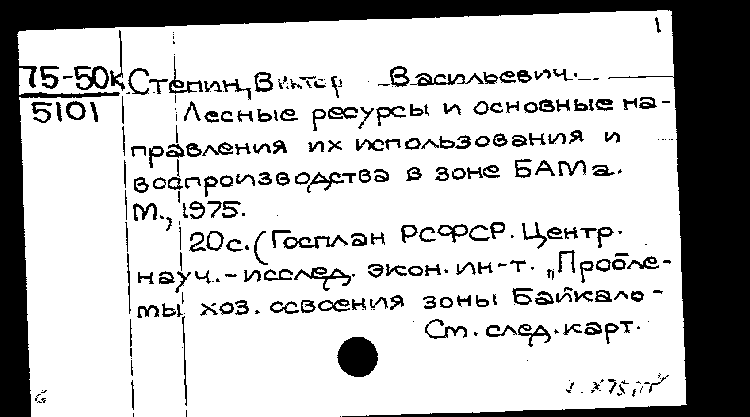 1
75-50к Степин, Виктор Васильевич.
5101 Лесные ресурсы и основные на-
правления их использования и
воспроизводства в зоне БАМа.
М., 1975.
20с. (Госплан РСФСР. Центр.
науч.-исслед. экон. ин-т. „Пробле-
мы хоз. освоения зоны Байкало-
См. след. карт.